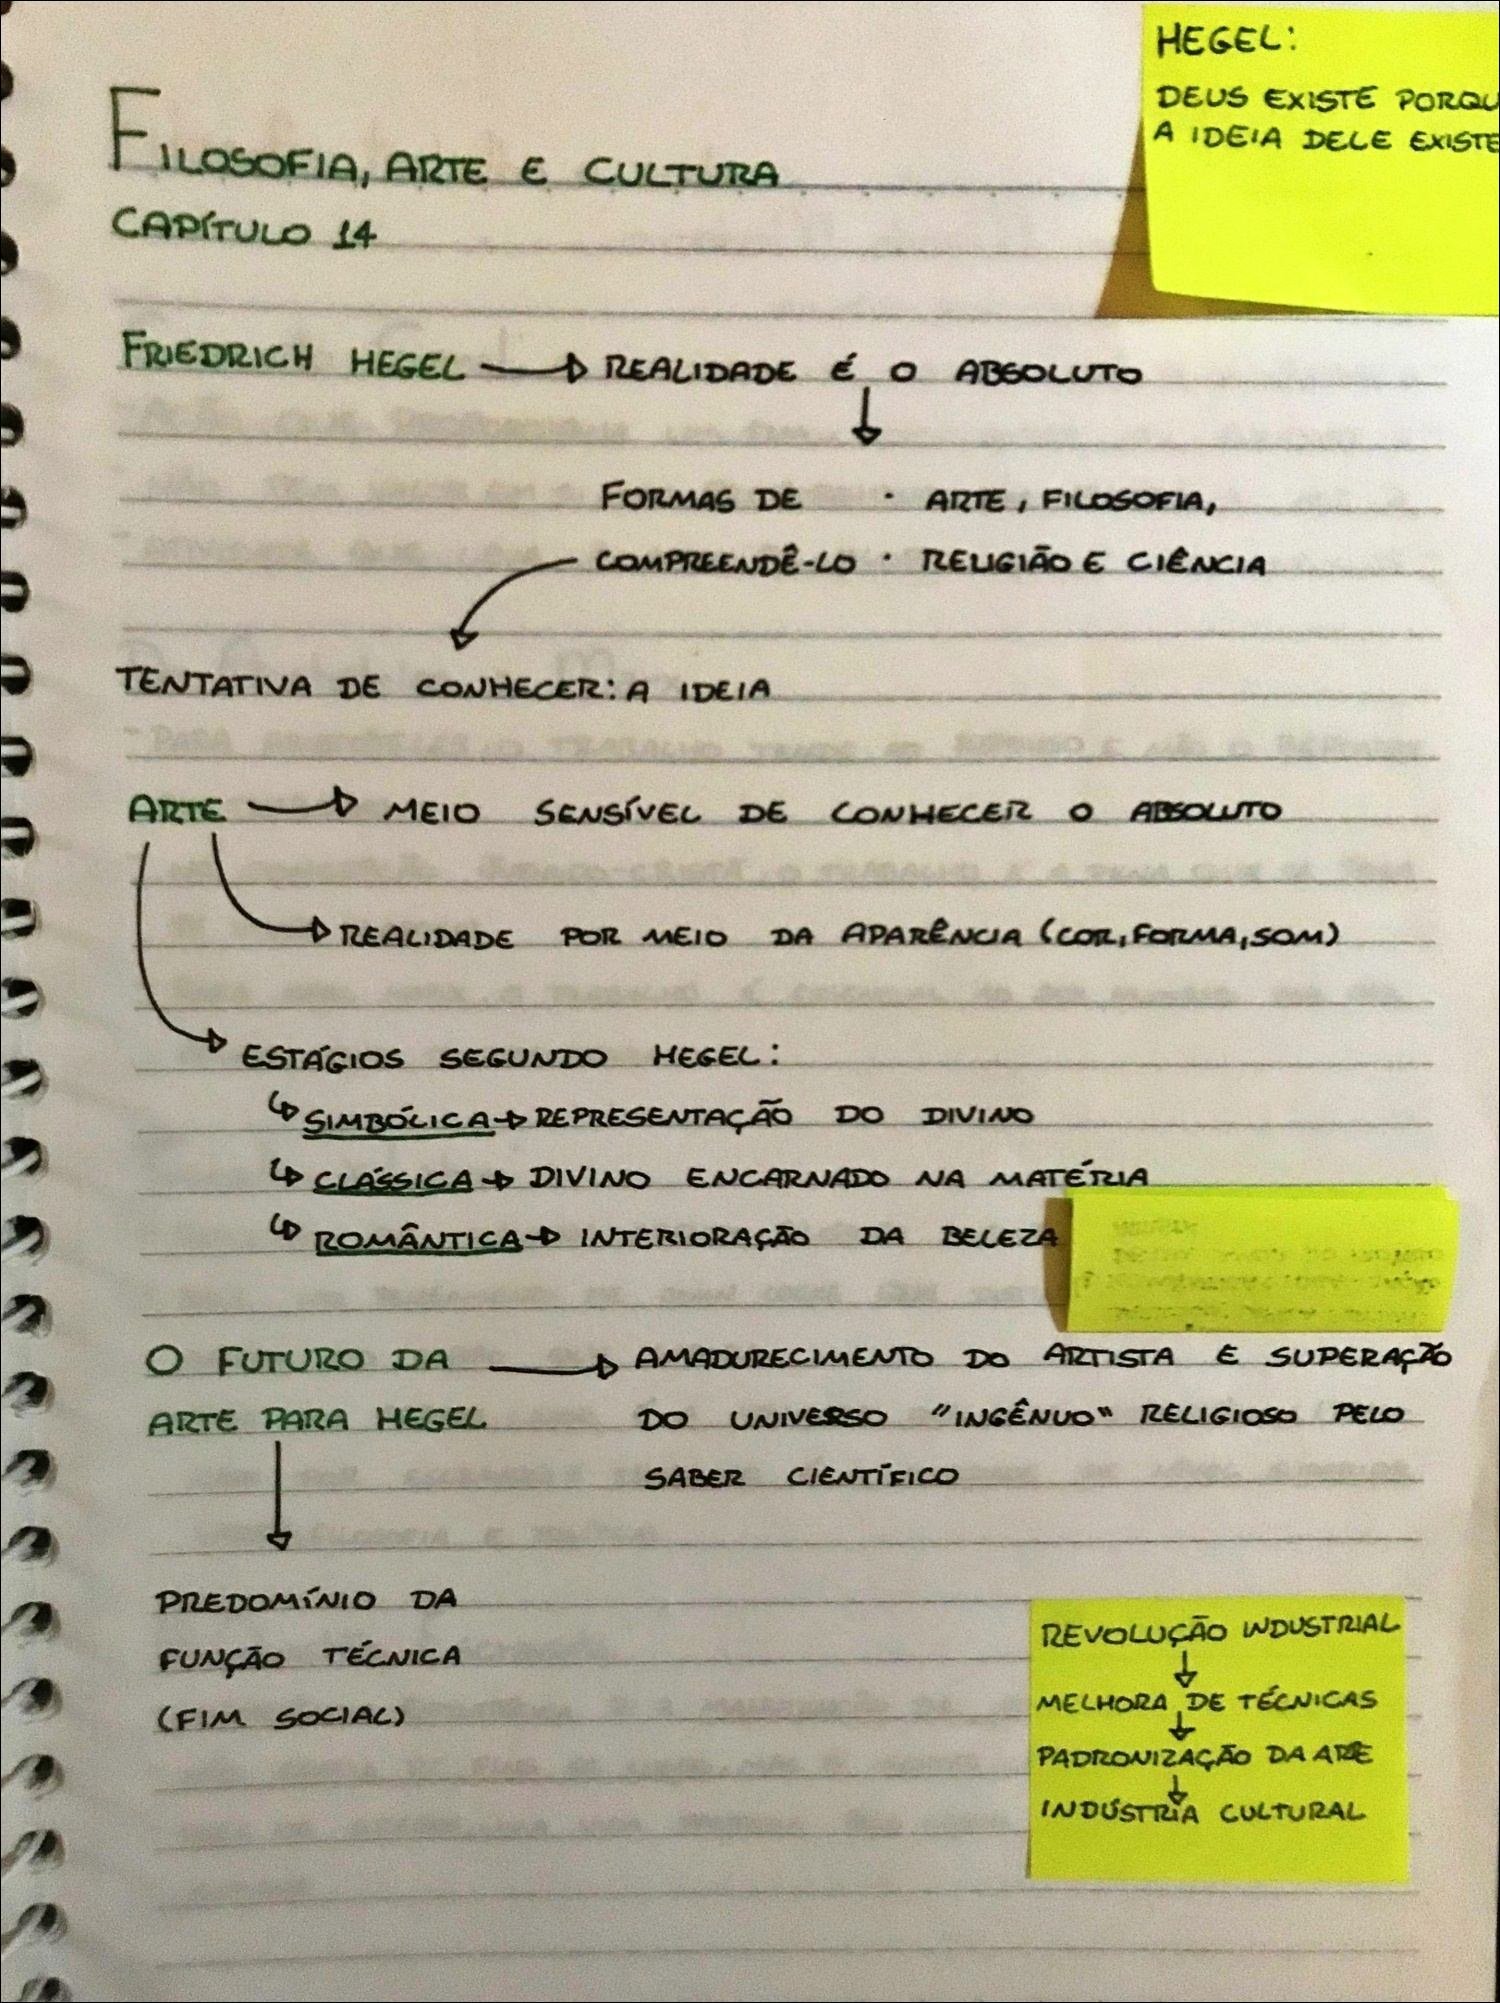 HEGEL:
DEUS EXISTE PORQU
A IDEIA DELE EXISTE
FILOSOFIA, ARTE E CULTURA
CAPÍTULO 14
FRIEDRICH HEGEL → REALIDADE É O ABSOLUTO
↓
FORMAS DE · ARTE, FILOSOFIA,
COMPREENDÊ-LO · RELIGIÃO E CIÊNCIA
TENTATIVA DE CONHECER: A IDEIA
ARTE → MEIO SENSÍVEL DE CONHECER O ABSOLUTO
→ REALIDADE POR MEIO DA APARÊNCIA (COR, FORMA, SOM)
→ ESTÁGIOS SEGUNDO HEGEL:
↳ SIMBÓLICA → REPRESENTAÇÃO DO DIVINO
↳ CLÁSSICA → DIVINO ENCARNADO NA MATÉRIA
↳ ROMÂNTICA → INTERIORAÇÃO DA BELEZA
O FUTURO DA → AMADURECIMENTO DO ARTISTA E SUPERAÇÃO
ARTE PARA HEGEL DO UNIVERSO "INGÊNUO" RELIGIOSO PELO
SABER CIENTÍFICO
↓
PREDOMÍNIO DA
FUNÇÃO TÉCNICA
(FIM SOCIAL)
REVOLUÇÃO INDUSTRIAL
↓
MELHORA DE TÉCNICAS
↓
PADRONIZAÇÃO DA ARTE
↓
INDÚSTRIA CULTURAL